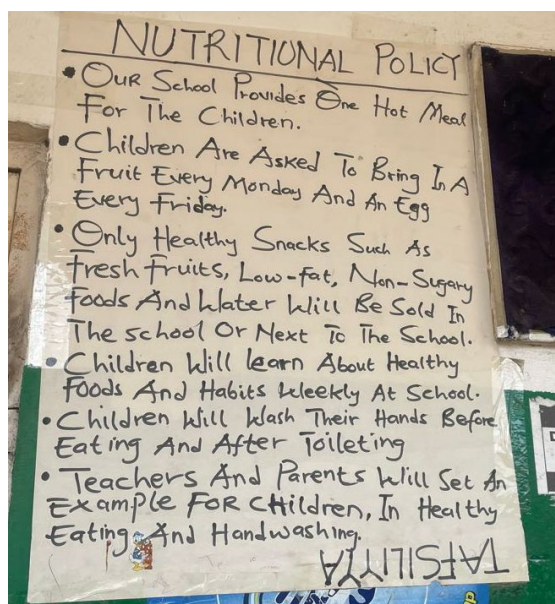 NUTRITIONAL POLICY
• Our School Provides One Hot Meal
For The Children.
• Children Are Asked To Bring In A
Fruit Every Monday And An Egg
Every Friday.
• Only Healthy Snacks Such As
Fresh Fruits, Low-fat, Non-Sugary
Foods And Water Will Be Sold In
The school Or Next To The School.
• Children Will learn About Healthy
Foods And Habits Weekly At School.
• Children Will Wash Their Hands Before
Eating And After Toileting
• Teachers And Parents Will Set An
Example FOR CHildren, In Healthy
Eating And Handwashing.
TAFSILIYYA